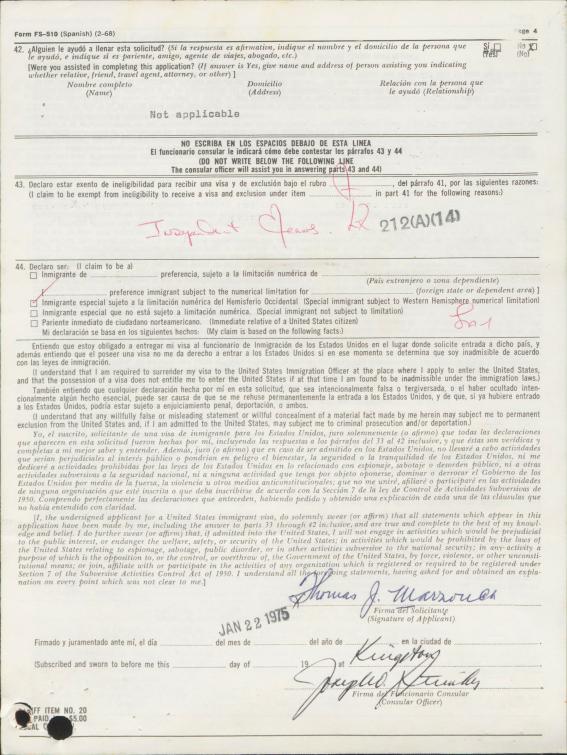 Form FS-510 (Spanish) (2-68)
Page 4
42. ¿Alguien le ayudó a llenar esta solicitud? (Si la respuesta es afirmation, indique el nombre y el domicilio de la persona que
le ayudó, e indique si es pariente, amigo, agente de viajes, abogado, etc.)
Sí (Yes) No X (No)
[Were you assisted in completing this application? (If answer is Yes, give name and address of person assisting you indicating
whether relative, friend, travel agent, attorney, or other) ]
Nombre completo Domicilio Relación con la persona que
(Name) (Address) le ayudó (Relationship)
Not applicable
NO ESCRIBA EN LOS ESPACIOS DEBAJO DE ESTA LINEA
El funcionario consular le indicará cómo debe contestar los párrafos 43 y 44
(DO NOT WRITE BELOW THE FOLLOWING LINE
The consular officer will assist you in answering parts 43 and 44)
43. Declaro estar exento de ineligibilidad para recibir una visa y de exclusión bajo el rubro , del párrafo 41, por las siguientes razones:
(I claim to be exempt from ineligibility to receive a visa and exclusion under item in part 41 for the following reasons:)
Independent Means.
212(A)(14)
44. Declaro ser: (I claim to be a)
Inmigrante de preferencia, sujeto a la limitación numérica de
(País extranjero o zona dependiente)
[ preference immigrant subject to the numerical limitation for (foreign state or dependent area) ]
Inmigrante especial sujeto a la limitación numérica del Hemisferio Occidental (Special immigrant subject to Western Hemisphere numerical limitation)
Inmigrante especial que no está sujeto a limitación numérica (Special immigrant not subject to limitation)
Pariente inmediato de ciudadano norteamericano. (Immediate relative of a United States citizen)
Mi declaración se basa en los siguientes hechos: (My claim is based on the following facts:)
Entiendo que estoy obligado a entregar mi visa al funcionario de Inmigración de los Estados Unidos en el lugar donde solicite entrada a dicho país, y
además entiendo que el poseer una visa no me da derecho a entrar a los Estados Unidos si en ese momento se determina que soy inadmisible de acuerdo
con las leyes de inmigración.
(I understand that I am required to surrender my visa to the United States Immigration Officer at the place where I apply to enter the United States,
and that the possession of a visa does not entitle me to enter the United States if at that time I am found to be inadmissible under the immigration laws.)
También entiendo que cualquier declaración hecha por mí en esta solicitud, que sea intencionalmente falsa o tergiversada, o el haber ocultado inten-
cionalmente algún hecho esencial, puede ser causa de que se me rehuse permanentemente la entrada a los Estados Unidos, y de que, si ya hubiere entrado
a los Estados Unidos, podría estar sujeto a enjuiciamiento penal, deportación, o ambos.
(I understand that any willfully false or misleading statement or willful concealment of a material fact made by me herein may subject me to permanent
exclusion from the United States and, if I am admitted to the United States, may subject me to criminal prosecution and/or deportation.)
Yo, el inscrito, solicitante de una visa de inmigrante para los Estados Unidos, juro solemnemente (o afirmo) que todas las declaraciones
que aparecen en esta solicitud fueron hechas por mí, incluyendo las respuestas a los párrafos del 33 al 42 inclusive, y que éstas son verídicas y
completas a mi mejor saber y entender. Además, juro (o afirmo) que en caso de ser admitido en los Estados Unidos, no llevaré a cabo actividades
que serían perjudiciales al interés público o pondrían en peligro el bienestar, la seguridad o la tranquilidad de los Estados Unidos, ni me
dedicaré a actividades prohibidas por las leyes de los Estados Unidos en lo relacionado con espionaje, sabotaje o desorden público, ni a otras
actividades subversivas a la seguridad nacional, ni a ninguna actividad que tenga por objeto oponerse, dominar o derrocar el Gobierno de los
Estados Unidos por medio de la fuerza, la violencia u otros medios anticonstitucionales; que no me uniré, afiliaré o participaré en las actividades
de ninguna organización que esté inscrita o que deba inscribirse de acuerdo con la Sección 7 de la ley de Control de Actividades Subversivas de
1950. Comprendo perfectamente las declaraciones que anteceden, habiendo pedido y obtenido una explicación de cada una de las cláusulas que
no había entendido con claridad.
[I, the undersigned applicant for a United States immigrant visa, do solemnly swear (or affirm) that all statements which appear in this
application have been made by me, including the answer to parts 33 through 42 inclusive, and are true and complete to the best of my knowl-
edge and belief. I do further swear (or affirm) that, if admitted into the United States, I will not engage in activities which would be prejudicial
to the public interest, or endanger the welfare, safety, or security of the United States; in activities which would be prohibited by the laws of
the United States relating to espionage, sabotage, public disorder, or in other activities subversive to the national security; in any activity a
purpose of which is the opposition to, or the control, or overthrow of, the Government of the United States, by force, violence, or other unconsti-
tutional means; or join, affiliate with or participate in the activities of any organization which is registered or required to be registered under
Section 7 of the Subversive Activities Control Act of 1950. I understand all the foregoing statements, having asked for and obtained an expla-
nation on every point which was not clear to me.]
Thomas J. Marzouca
Firma del Solicitante
(Signature of Applicant)
JAN 22 1975
Firmado y juramentado ante mí, el día del mes de del año de en la ciudad de
Kingston
(Subscribed and sworn to before me this day of 19 at
Firma del Funcionario Consular
(Consular Officer)
ITEM NO. 20
PAID $5.00